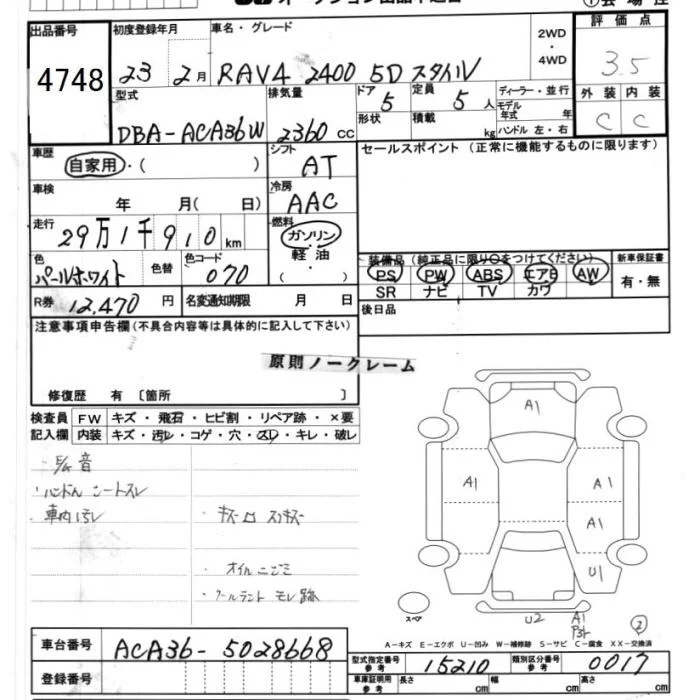 出品番号 初度登録年月 車名・グレード 2WD・4WD 評価点
4748 23 2月 RAV4 2400 5D スタイル 3.5
型式 排気量 ドア 5 定員 5人 ディーラー・並行 外装 内装
形状 積載 kg モデル年式 年 C C
DBA-ACA36W 2360 cc ハンドル 左・右
車歴 シフト セールスポイント (正常に機能するものに限ります)
自家用・( ) AT
車検 冷房
年 月( 日) AAC
走行 燃料
29万1千910 km ガソリン
色 色替 色コード 軽油 装備品(純正品に限り○をつけてください) 新車保証書
パールホワイト 070 ( ) PS PW ABS エアB AW 有・無
SR ナビ TV カワ
R券 12,470円 名変通知期限 月 日 後日品
注意事項申告欄(不具合内容等は具体的に記入して下さい)
原則ノークレーム
修復歴 有 〔箇所 〕
検査員 FW キズ・飛石・ヒビ割・リペア跡・×要
記入欄 内装 キズ・汚レ・コゲ・穴・スレ・キレ・破レ
E/G 音
・ハンドル シートスレ
・車内汚レ ・キズ スリキズ
・オイルニジミ
・クーラント モレ跡
A1
A1 A1
A1
U1
スペア U2 A1
2
A-キズ E-エクボ U-凹み W-補修跡 S-サビ C-腐食 XX-交換済
車台番号 ACA36-5028668
型式指定番号 参考 15210 類別区分番号 参考 0017
登録番号 車庫証明用 参考 長さ cm 幅 cm 高さ cm